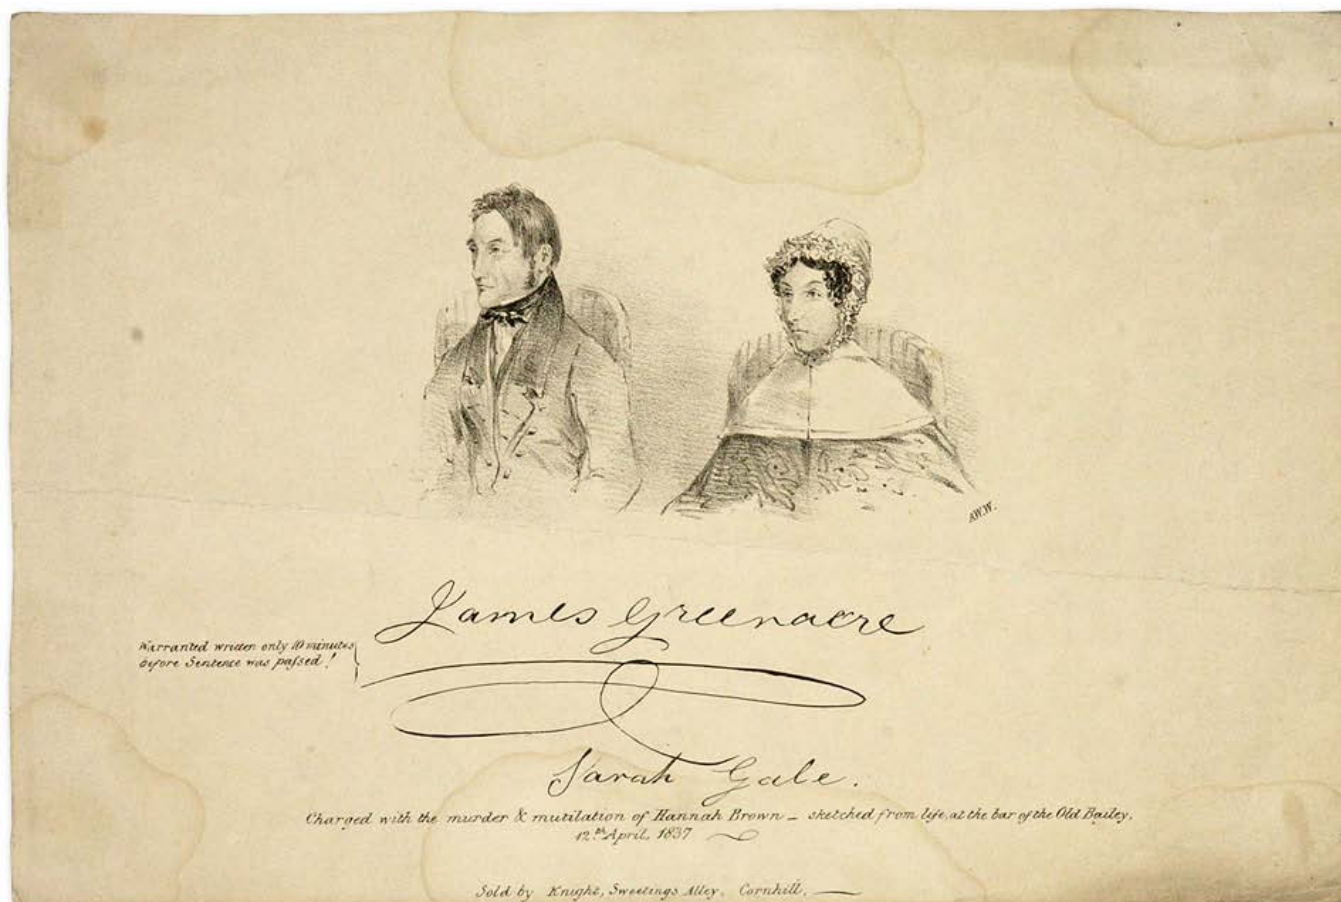 A.W.W.
James Greenacre
Warranted written only 10 minutes
before Sentence was passed!
Sarah Gale.
Charged with the murder & mutilation of Hannah Brown _ sketched from life, at the bar of the Old Bailey,
12th April, 1837
Sold by Knight, Sweetings Alley, Cornhill.